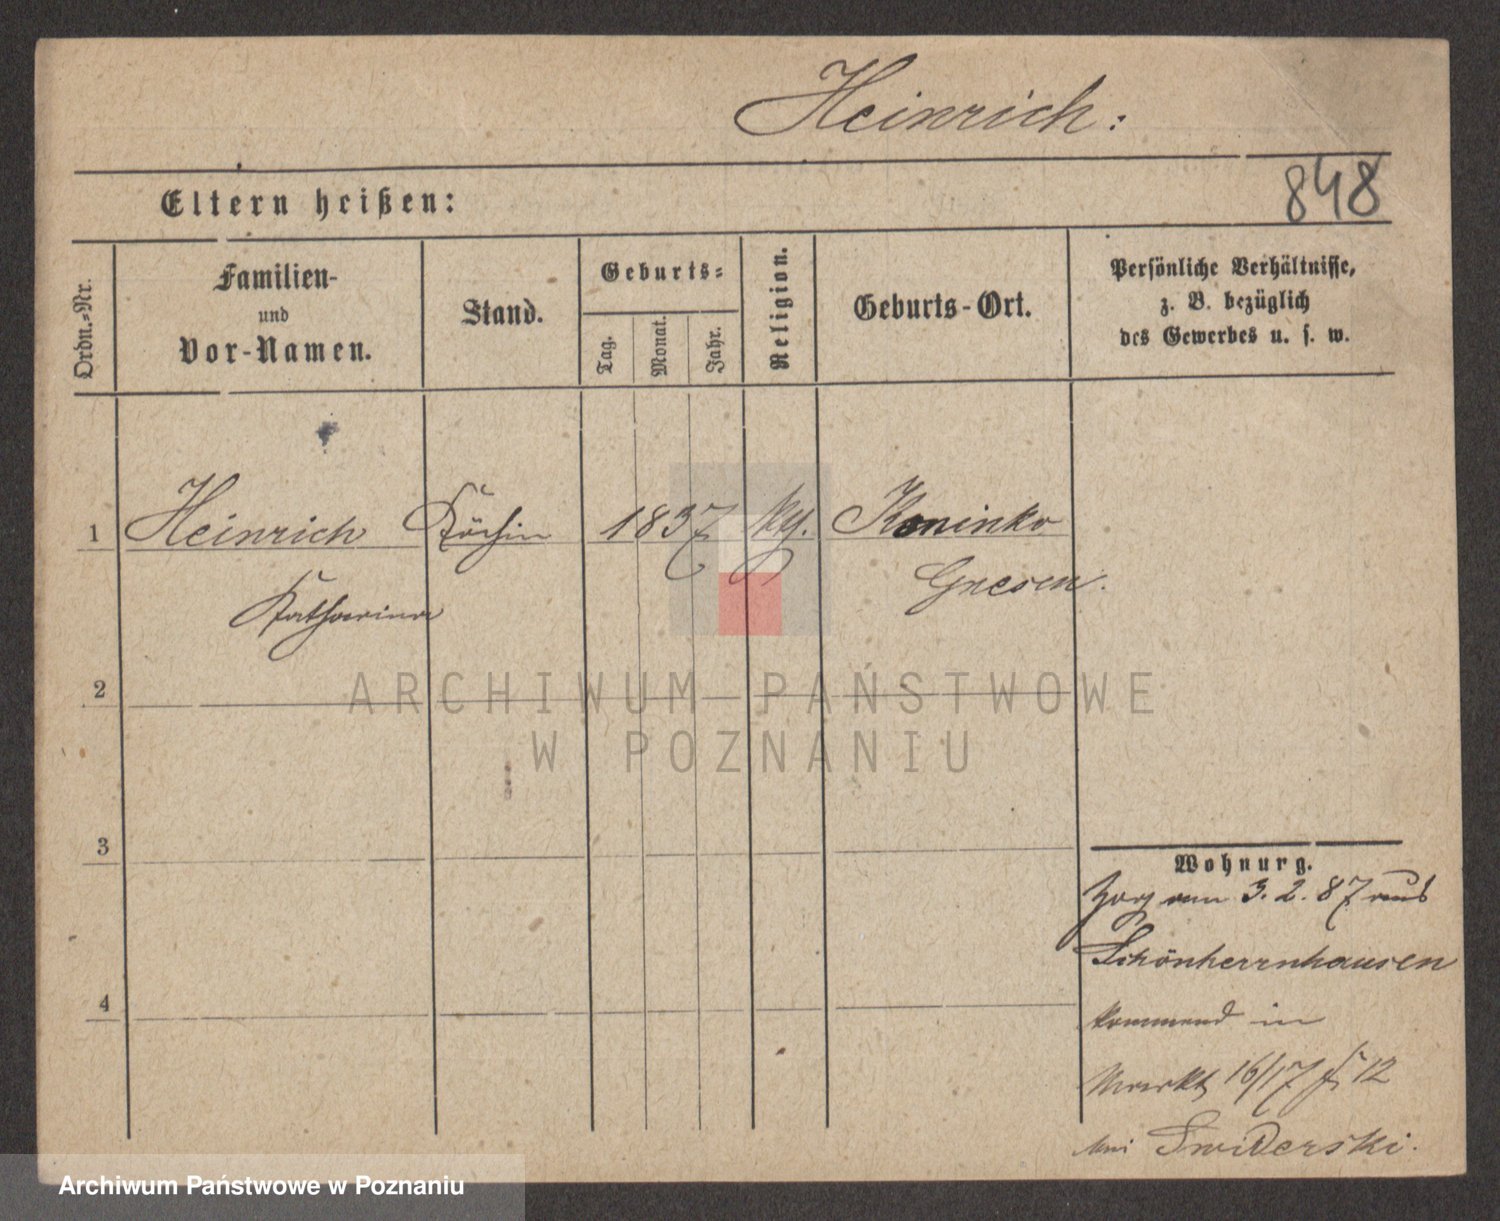 Heinrich:
848
Eltern heißen:
Ordn.-Nr.
Familien-
und
Vor-Namen.
Stand.
Geburts-
Tag.
Monat.
Jahr.
Religion.
Geburts-Ort.
Persönliche Verhältnisse,
z. B. bezüglich
des Gewerbes u. s. w.
1 Heinrich Köchin 1837 kth. Koninko
Katharina Gnesen.
2
3
4
Wohnung.
Zog am 3. 2. 87 aus
Schönherrnhausen
kommend in
Markt 16/17 12
bei Swiderski.
ARCHIWUM PAŃSTWOWE
W POZNANIU
Archiwum Państwowe w Poznaniu